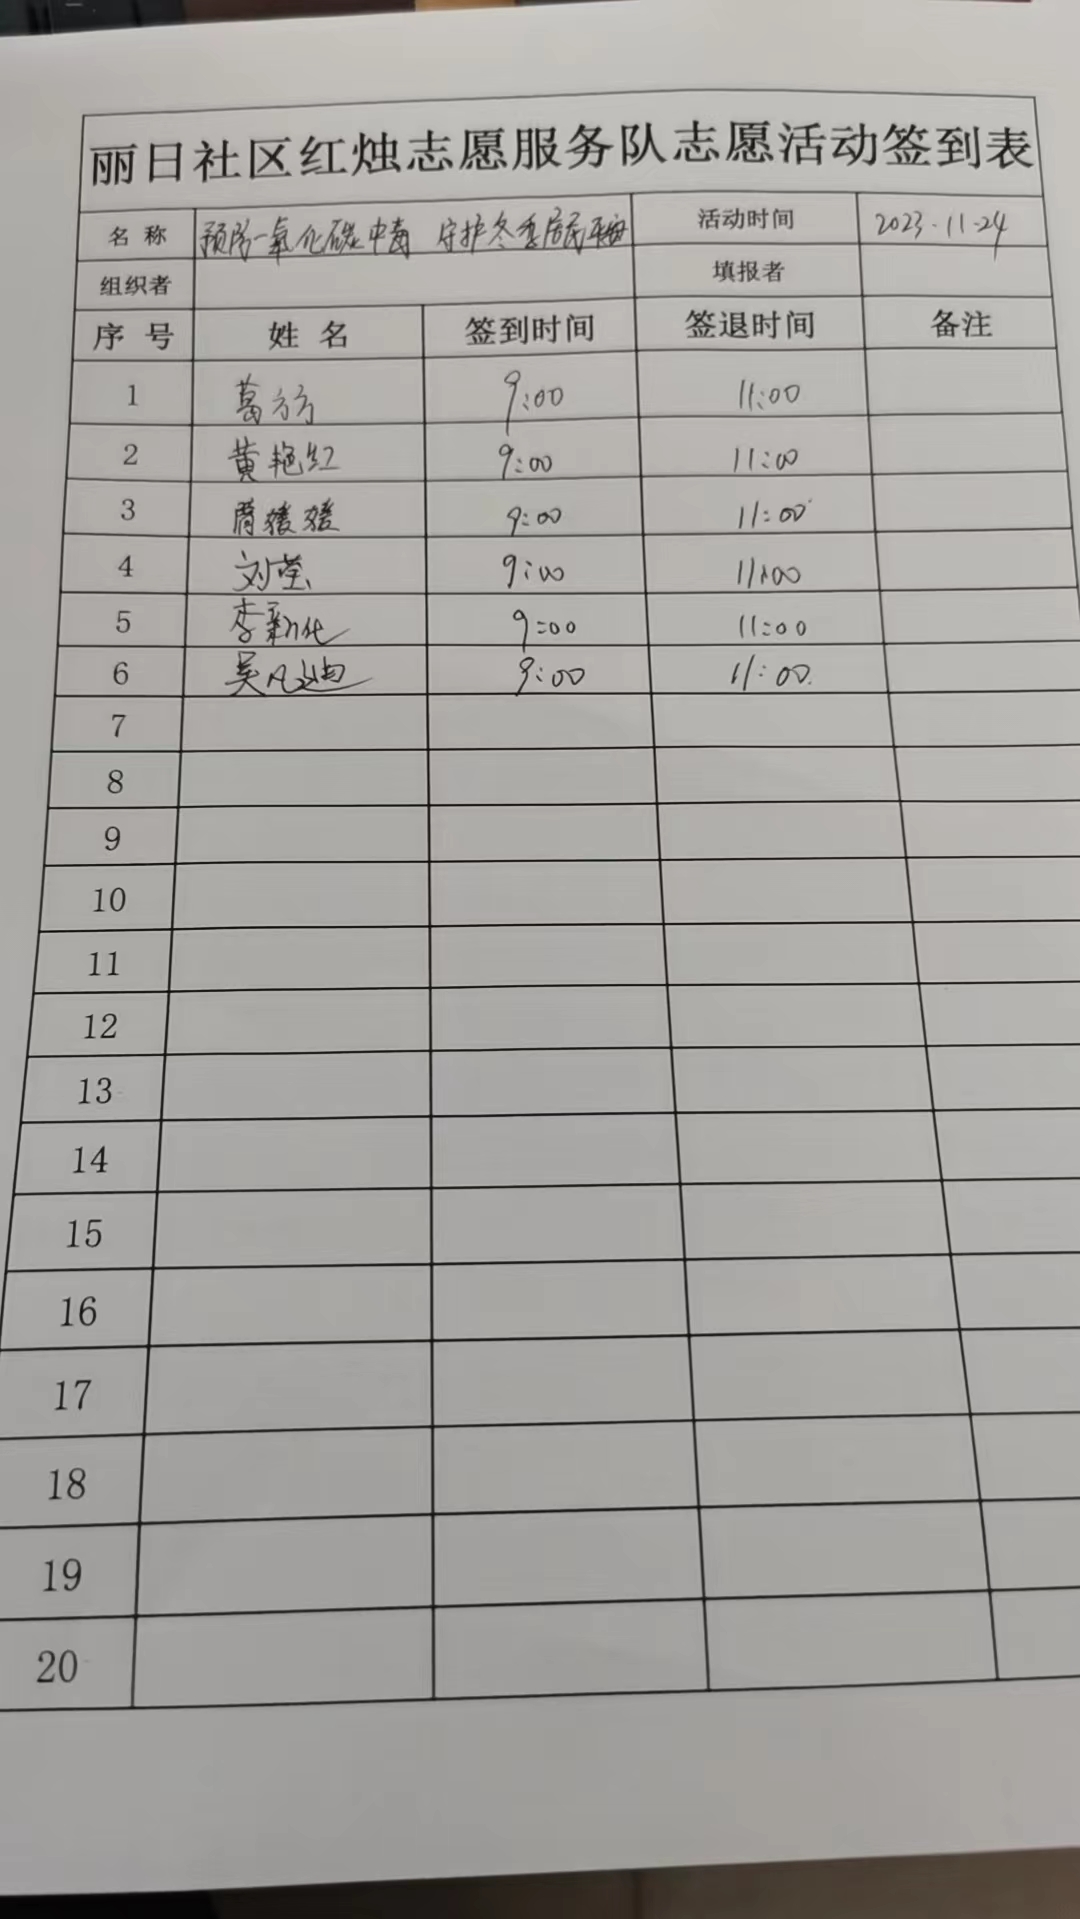 丽日社区红烛志愿服务队志愿活动签到表
名称 预防一氧化碳中毒 守护冬季居民平安 活动时间 2023.11.24
组织者 填报者
序号 姓名 签到时间 签退时间 备注
1 葛方方 9:00 11:00
2 黄艳红 9:00 11:00
3 9:00 11:00
4 刘莹 9:00 11:00
5 李新化 9:00 11:00
6 吴凡迪 9:00 11:00
7
8
9
10
11
12
13
14
15
16
17
18
19
20